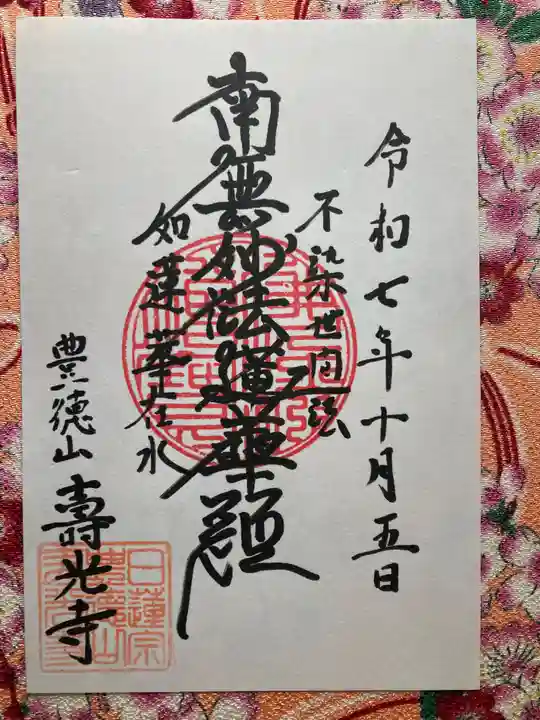 令和七年十月五日
不染世間法
南無妙法蓮華経
如蓮華在水
豊徳山 壽光寺
日蓮宗